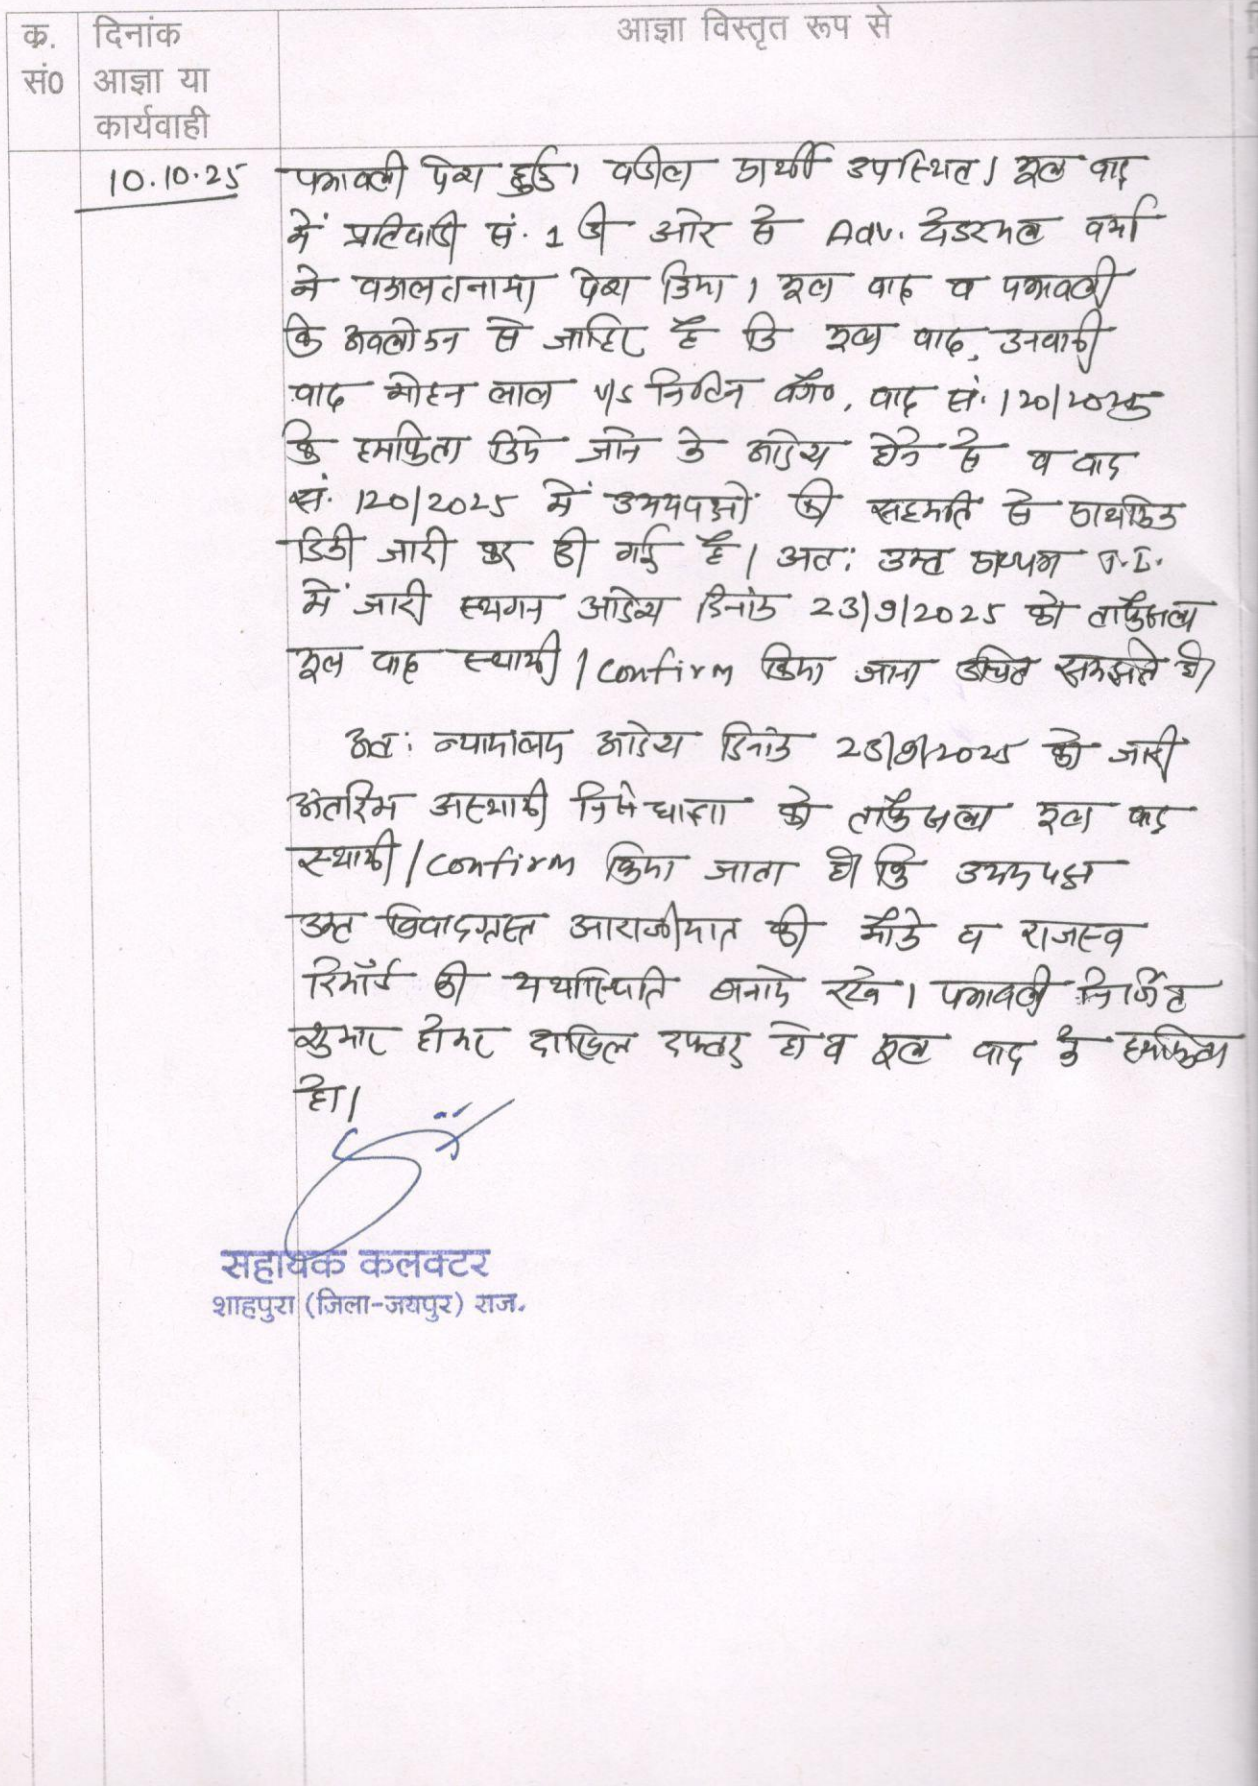 क्र.
सं0
दिनांक
आज्ञा या
कार्यवाही
आज्ञा विस्तृत रूप से
10.10.25
पत्रावली पेश हुई। वकील प्रार्थी उपस्थित। मूल वाद
में प्रतिवादी सं. 1 की ओर से Adv. वर्मा
ने वकालतनामा पेश किया। मूल वाद व पत्रावली
के अवलोकन से जाहिर है कि मूल वाद, उनवानी
वाद मोहन लाल v/s वगै०, वाद सं. 120/2025
के हमफिता किये जाने के आदेश होने से व वाद
सं. 120/2025 में उभयपक्षों की सहमति से प्राथमिक
डिक्री जारी कर दी गई है। अतः उक्त T.I.
में जारी स्थगन आदेश दिनांक 23/9/2025 को ताफैसला
मूल वाद स्थायी/confirm किया जाना उचित समझते है।
अतः न्यायालय आदेश दिनांक 23/9/2025 को जारी
अंतरिम अस्थायी निषेधाज्ञा को ताफैसला मूल वाद
स्थायी/confirm किया जाता है। कि उभयपक्ष
उक्त विवादग्रस्त आराजीयात की मौके व राजस्व
रिकॉर्ड की यथास्थिति बनाये रखे। पत्रावली निर्णित
शुमार होकर दाखिल दफ्तर हो व मूल वाद के हमफिता
हो।
सहायक कलक्टर
शाहपुरा (जिला-जयपुर) राज.